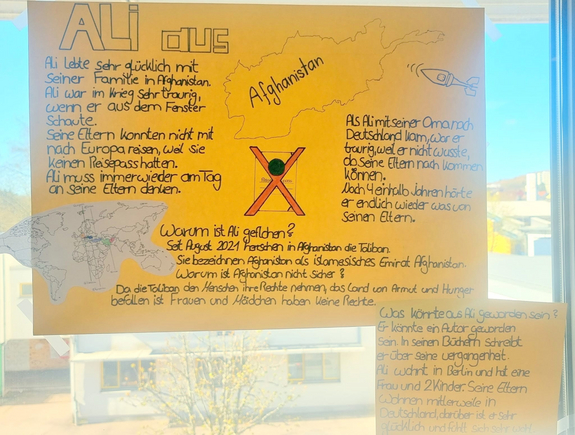 Ali aus
Afghanistan
Ali lebte sehr glücklich mit
seiner Familie in Afghanistan.
Ali war im Krieg sehr traurig,
wenn er aus dem Fenster
schaute.
Seine Eltern konnten nicht mit
nach Europa reisen, weil sie
keinen Reisepass hatten.
Ali muss immer wieder am Tag
an seine Eltern denken.
Als Ali mit seiner Oma nach
Deutschland kam, war er
traurig, weil er nicht wusste,
ob seine Eltern nach kommen
können.
Nach 4 einhalb Jahren hörte
er endlich wieder was von
seinen Eltern.
Warum ist Ali geflohen?
Seit August 2021 herrschen in Afghanistan die Taliban.
Sie bezeichnen Afghanistan als islamesisches Emirat Afghanistan.
Warum ist Afghanistan nicht sicher?
Da die Taliban den Menschen ihre Rechte nehmen, das Land von Armut und Hunger
befallen ist Frauen und Mädchen haben keine Rechte.
Was könnte aus Ali geworden sein?
Er könnte ein Autor geworden
sein. In seinen Büchern schreibt
er über seine vergangenheit.
Ali wohnt in Berlin und hat eine
Frau und 2 Kinder. Seine Eltern
wohnen mitlerweile in
Deutschland, darüber ist er sehr
glücklich und fühlt sich sehr wohl.